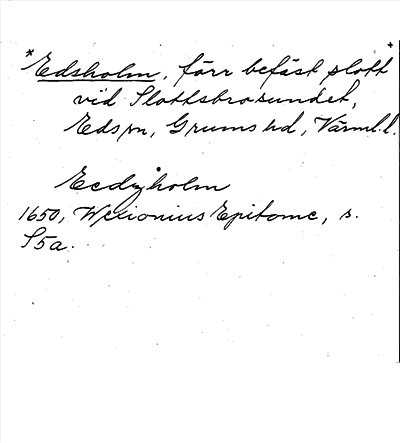 * Edsholm, förr befäst slott
vid Slottsbrosundet,
Eds sn, Grums hd, Värml. l.
Eedzholm
1650, Wexionius Epitome, s.
S5a.